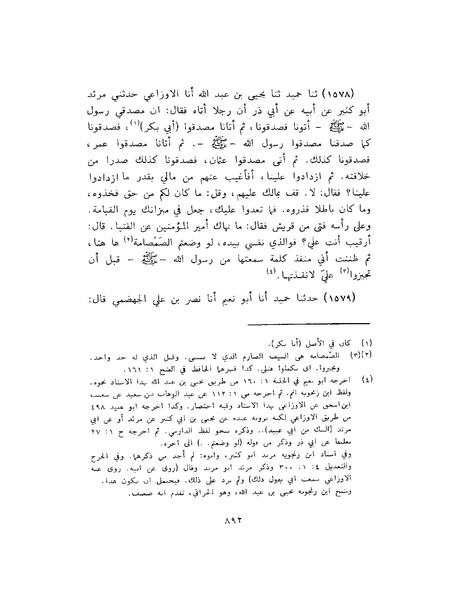 (١٥٧٨) ثنا حميد ثنا يحيى بن عبد الله أنا الاوزاعي حدثني مرثد
أبو كثير عن أبيه عن أبي ذر أن رجلا أتاه فقال: ان مصدقي رسول
الله - ﷺ - أتونا فصدقونا، ثم أتانا مصدقوا (أبي بكر)(١)، فصدقونا
كما صدقنا مصدقوا رسول الله - ﷺ -. ثم أتانا مصدقوا عمر،
فصدقونا كذلك. ثم أتى مصدقوا عثمان، فصدقونا كذلك صدرا من
خلافته. ثم ازدادوا علينا، أفأغيب عنهم من مالي بقدر ما ازدادوا
علينا؟ فقال: لا. قف بمالك عليهم، وقل: ما كان لكم من حق فخذوه،
وما كان باطلا فذروه. فما تعدوا عليك، جعل في ميزانك يوم القيامة.
وعلى رأسه فتى من قريش فقال: ما نهاك أمير المؤمنين عن الفتيا. قال:
أرقيب أنت علي؟ فوالذي نفسي بيده، لو وضعتم الصَمْصامة(٢) ها هنا،
ثم ظننت أني منفذ كلمة سمعتها من رسول الله - ﷺ - قبل أن
تجيزوا(٣) عليّ لانفذتها.(٤)
(١٥٧٩) حدثنا حميد أنا أبو نعيم أنا نصر بن علي الجهضمي قال:
(١) كان في الأصل (أبا بكر).
(٢)(٣) الصَّمصامة هي السيف الصارم الذي لا ينثني. وقيل الذي له حد واحد.
وتجيزوا. اي تكملوا قتلي. كذا فسرهما الحافظ في الفتح ١: ١٦١.
(٤) اخرجه ابو نعيم في الحلية ١: ١٦٠ من طريق يحيى بن عبد الله بهذا الاسناد نحوه.
ولفظ ابن زنجويه اتم. ثم أخرجه مي ١: ١١٢ عن عبد الوهاب بن سعيد عن شعيب
ابن اسحق عن الاوزاعي بهذا الاسناد وفيه اختصار. وكذا اخرجه ابو عبيد ٤٩٨
من طريق الاوزاعي لكنه يرويه عنده عن يحيى بن ابي كثير عن مرثد أو عن ابن
مرثد (الشك من أبي عبيد).. وذكره نحو لفظ الدارمي. ثم أخرجه خ ١: ٢٧
معلقا عن ابي ذر وذكر من قوله (لو وضعتم. .) الى آخره.
وفي اسناد ابن زنجويه مرثد ابو كثير، وابوه: لم أجد من ذكرهما. وفي الجرح
والتعديل ٤: ١: ٣٠٠ وذكر مرثد ابو مرثد وقال (روى عن ابيه. روى عنه
الاوزاعي سمعت أبي يقول ذلك) ولم يزد على ذلك. فيحتمل ان يكون هذا.
وشيخ ابن زنجويه يحيى بن عبد الله، وهو الحراني، تقدم انه ضعيف.
٨٩٢